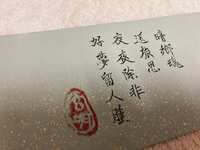 暗鄉魂
追旅思
夜夜除非
好夢留人睡